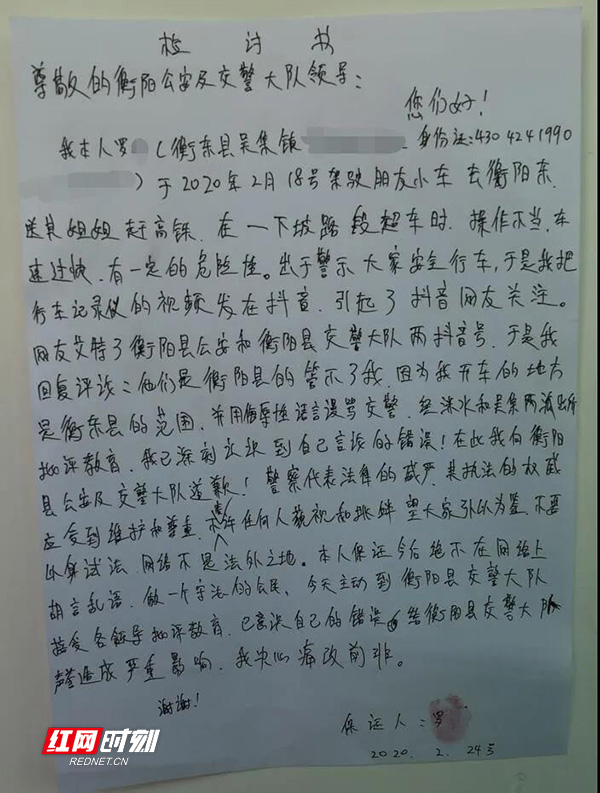 检讨书
尊敬的衡阳公安及交警大队领导：
您们好！
我本人罗（衡东县吴集镇 身份证：430 424 1990
）于2020年2月18号驾驶朋友小车去衡阳东
送其姐姐赶高铁，在一下坡路段超车时，操作不当，车
速过快，有一定的危险性。出于警示大家安全行车，于是我把
行车记录仪的视频发在抖音，引起了抖音网友关注。
网友艾特了衡阳县公安和衡阳县交警大队两抖音号，于是我
回复评论：他们是衡阳县的管不了我，因为我开车的地方
是衡东县的范围，并用侮辱性语言谩骂交警，经涞水和吴集两派出所
批评教育，我已深刻认识到自己言论的错误！在此我向衡阳
县公安及交警大队道歉！警察代表法律的威严，其执法的权威
应受到维护和尊重，不容许任何人藐视和挑衅，望大家引以为鉴，不要
以身试法，网络不是法外之地。本人保证今后绝不在网络上
胡言乱语，做一个守法的公民，今天主动到衡阳县交警大队
接受各领导批评教育，已意识自己的错误，给衡阳县交警大队
声誉造成严重影响，我决心痛改前非。
谢谢！
保证人：罗
2020. 2. 24号
红网时刻
REDNET.CN